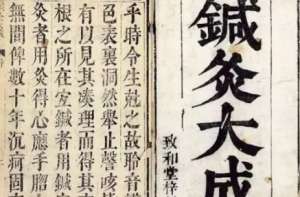 鍼灸大成
致和堂梓
乎時令生尅之故聆音
邑表裏洞然舉止謦咳
有以見其湊理而得其
根之所在宜鍼者用鍼
灸者用灸得心應手
無間俾數十年沉疴固